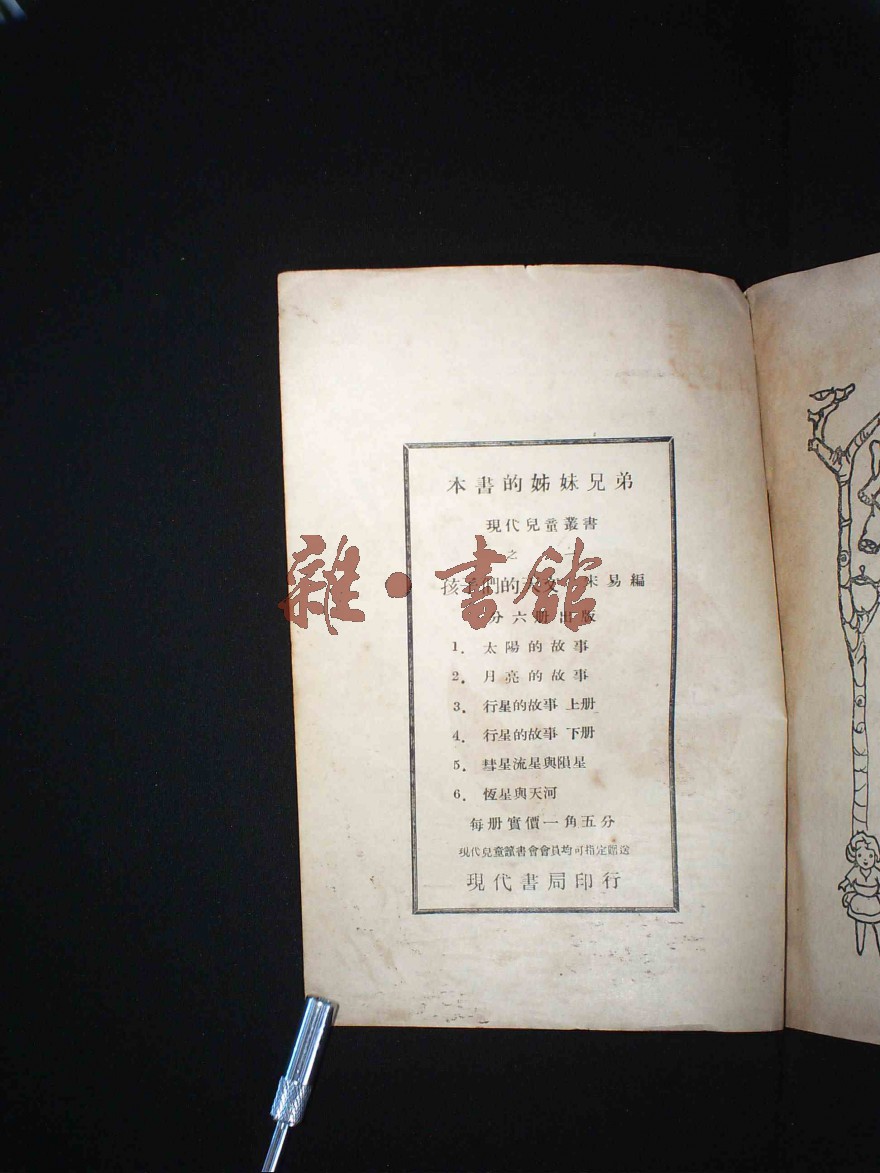 本書的姊妹兄弟
現代兒童叢書
之
孩子們的天文 朱易編
分六册出版
1. 太陽的故事
2. 月亮的故事
3. 行星的故事 上册
4. 行星的故事 下册
5. 彗星流星與隕星
6. 恆星與天河
每册實價一角五分
現代兒童讀書會會員均可指定贈送
現代書局印行
雜·書館